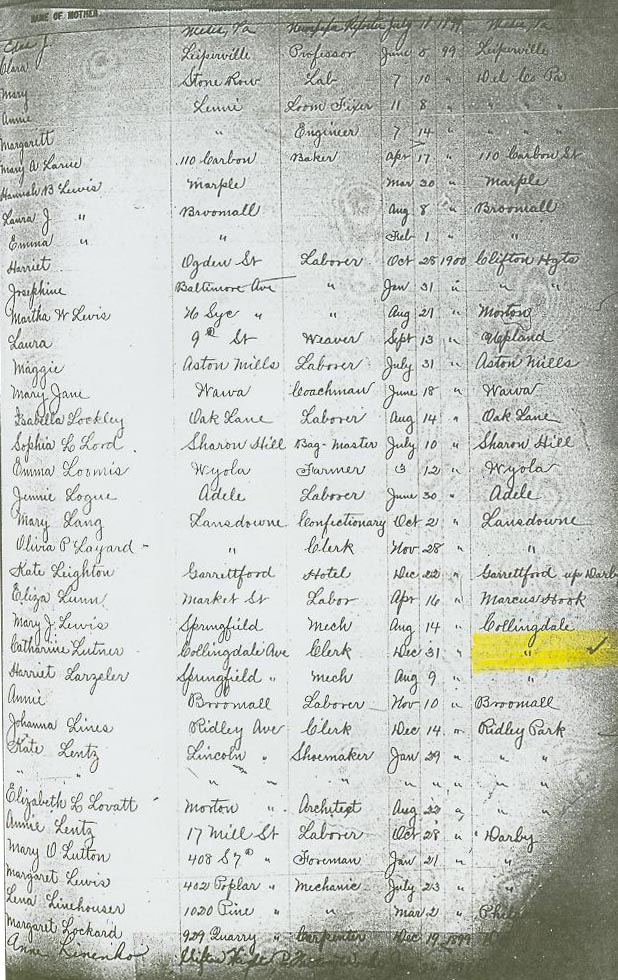 NAME OF MOTHER
Media, Pa Newspaper Reporter July 18 1899 Media, Pa
Clara Leiperville Professor June 5 99 Leiperville
Mary Stone Row Lab 7 10 " Del Co Pa
Annie Lenni Loom Fixer 11 8 " " " "
Margarett " Engineer 7 14 " " " "
Mary A Larue 110 Carbon Baker Apr 17 " 110 Carbon St
Hannah B Lewis Marple Mar 30 " Marple
Laura J " Broomall Aug 8 " Broomall
Emma " " Feb 1 " "
Harriet Ogden St Laborer Oct 28 1900 Clifton Hgts
Josephine Baltimore Ave " Jan 31 " " "
Martha W Lewis " Aug 21 " Morton
Laura 9th St Weaver Sept 13 " Upland
Maggie Aston Mills Laborer July 31 " Aston Mills
Mary Jane Wawa Coachman June 18 " Wawa
Isabella Lockley Oak Lane Laborer Aug 14 " Oak Lane
Sophia L Lord Sharon Hill Bag-Master July 10 " Sharon Hill
Emma Loomis Wyola Farmer 12 " Wyola
Jennie Logue Adele Laborer June 30 " Adele
Mary Lang Lansdowne Confectionary Oct 2 " Lansdowne
Olivia P Layard - " Clerk Nov 28 " "
Kate Leighton Garrettford Hotel Dec 22 " Garrettford up Darby
Eliza Lunn Market St Labor Apr 16 " Marcus Hook
Mary J. Lewis Springfield Mech Aug 14 " Collingdale
Catharine Lutner Collingdale Ave Clerk Dec 31 " " ✓
Harriet Larzeler Springfield " Mech Aug 9 " "
Annie Broomall Laborer Nov 10 " Broomall
Johanna Lines Ridley Ave Clerk Dec 14 " Ridley Park
Kate Lentz Lincoln " Shoemaker Jan 29 " " "
" " " " " " " " " "
Elizabeth L Lovatt Morton " Architect Aug 22 " " "
Annie Lentz 17 Mill St Laborer Oct 28 " Darby
Mary O. Lutton 408 S 7th " Foreman Jan 21 " "
Margaret Lewis 402 Poplar " Mechanic July 23 " "
Lena Linehouser 1020 Pine " " Mar 2 "
Margaret Lockard 929 Quarry " Carpenter Dec 19 1899
Anne